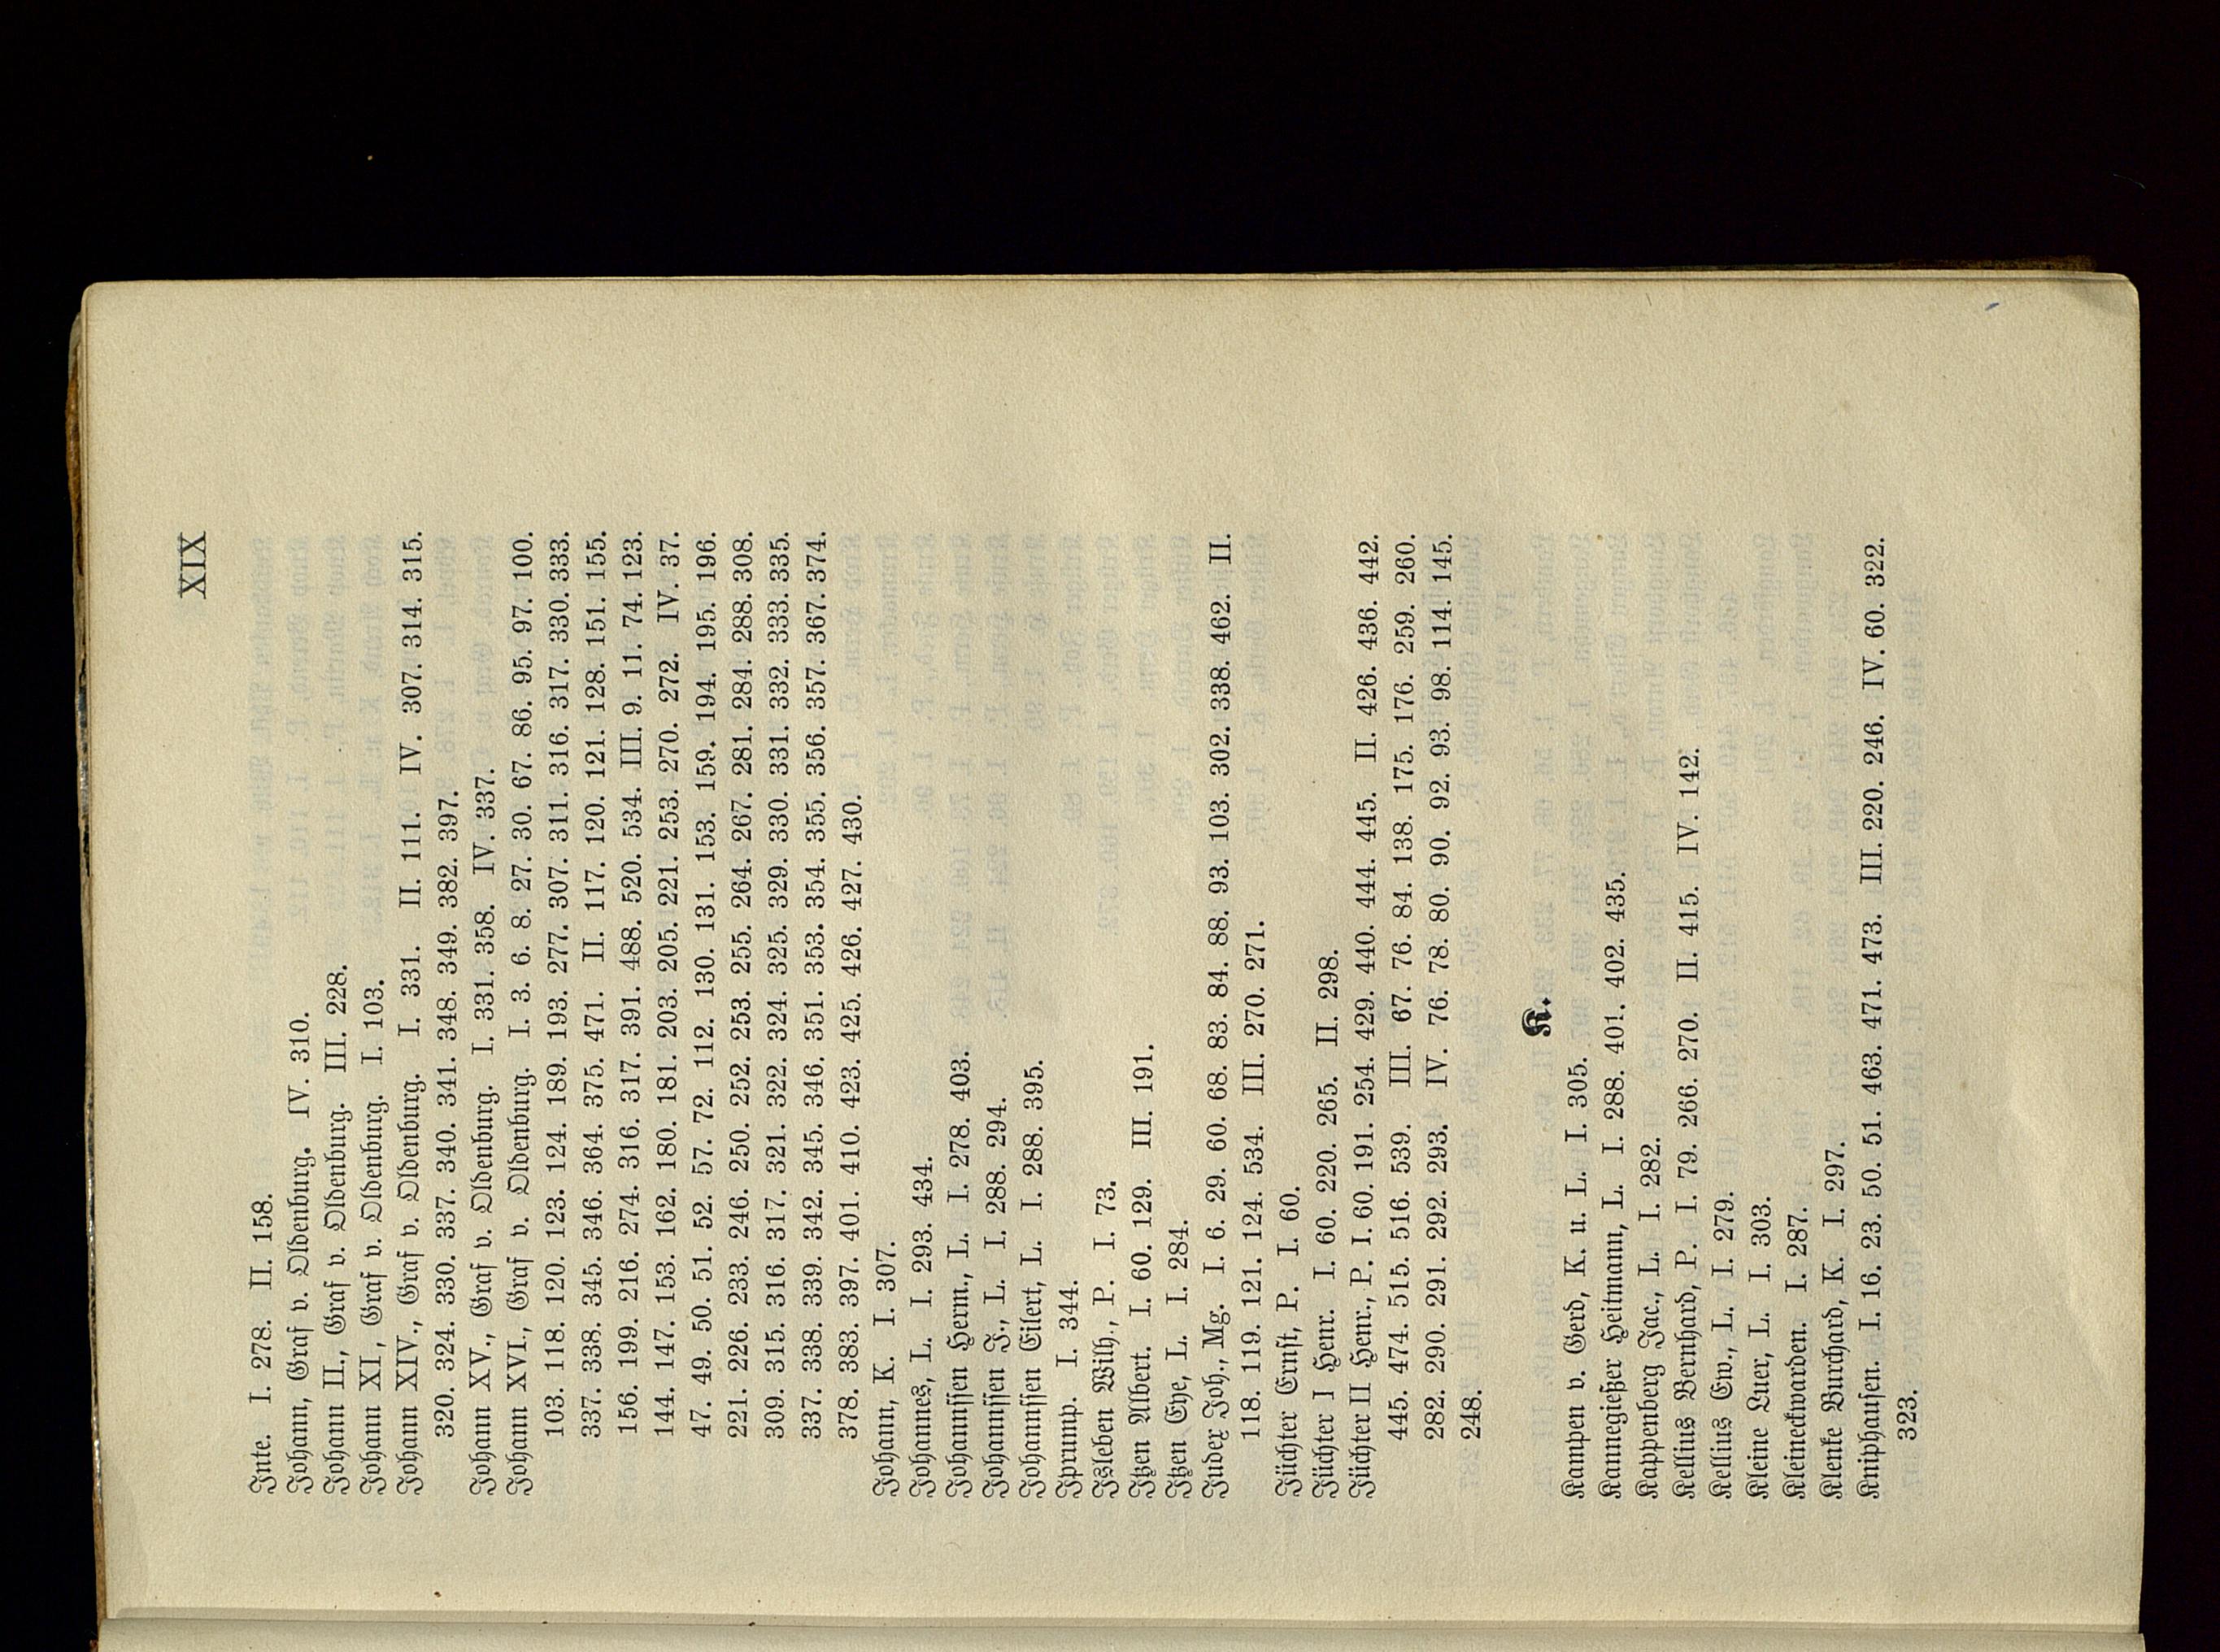 XIX
Inte. I. 278. II. 158.
Johann, Graf v. Oldenburg. IV. 310.
Johann II., Graf v. Oldenburg. III. 228.
Johann XI, Graf v. Oldenburg. I. 103.
Johann XIV., Graf v. Oldenburg. I. 331. II. 111. IV. 307. 314. 315.
320. 324. 330. 337. 340. 341. 348. 349. 382. 397.
Johann XV., Graf v. Oldenburg. I. 331. 358. IV. 337.
Johann XVI., Graf v. Oldenburg. I. 3. 6. 8. 27. 30. 67. 86. 95. 97. 100.
103. 118. 120. 123. 124. 189. 193. 277. 307. 311. 316. 317. 330. 333.
337. 338. 345. 346. 364. 375. 471. II. 117. 120. 121. 128. 151. 155.
156. 199. 216. 274. 316. 317. 391. 488. 520. 534. III. 9. 11. 74. 123.
144. 147. 153. 162. 180. 181. 203. 205. 221. 253. 270. 272. IV. 37.
47. 49. 50. 51. 52. 57. 72. 112. 130. 131. 153. 159. 194. 195. 196.
221. 226. 233. 246. 250. 252. 253. 255. 264. 267. 281. 284. 288. 308.
309. 315. 316. 317. 321. 322. 324. 325. 329. 330. 331. 332. 333. 335.
337. 338. 339. 342. 345. 346. 351. 353. 354. 355. 356. 357. 367. 374.
378. 383. 397. 401. 410. 423. 425. 426. 427. 430.
Johann, K. I. 307.
Johannes, L. I. 293. 434.
Johannssen Herm., L. I. 278. 403.
Johannssen J., L. I. 288. 294.
Johannssen Eilert, L. I. 288. 395.
Iprump. I. 344.
Isleben Wilh., P. I. 73.
Itzen Albert. I. 60. 129. III. 191.
Itzen Ehe, L. I. 284.
Judex Joh., Mg. I. 6. 29. 60. 68. 83. 84. 88. 93. 103. 302. 338. 462. II.
118. 119. 121. 124. 534. III. 270. 271.
Jüchter Ernst, P. I. 60.
Jüchter I Henr. I. 60. 220. 265. II. 298.
Jüchter II Henr., P. I. 60. 191. 254. 429. 440. 444. 445. II. 426. 436. 442.
445. 474. 515. 516. 539. III. 67. 76. 84. 138. 175. 176. 259. 260.
282. 290. 291. 292. 293. IV. 76. 78. 80. 90. 92. 93. 98. 114. 145.
248.
K.
Kampen v. Gerd, K. u. L. I. 305.
Kannegießer Heitmann, L. I. 288. 401. 402. 435.
Kappenberg Jac., L. I. 282.
Kellius Bernhard, P. I. 79. 266. 270. II. 415. IV. 142.
Kellius Ew., L. I. 279.
Kleine Luer, L. I. 303.
Kleinekwarden. I. 287.
Klenke Burchard, K. I. 297.
Kniphausen. I. 16. 23. 50. 51. 463. 471. 473. III. 220. 246. IV. 60. 322.
323.